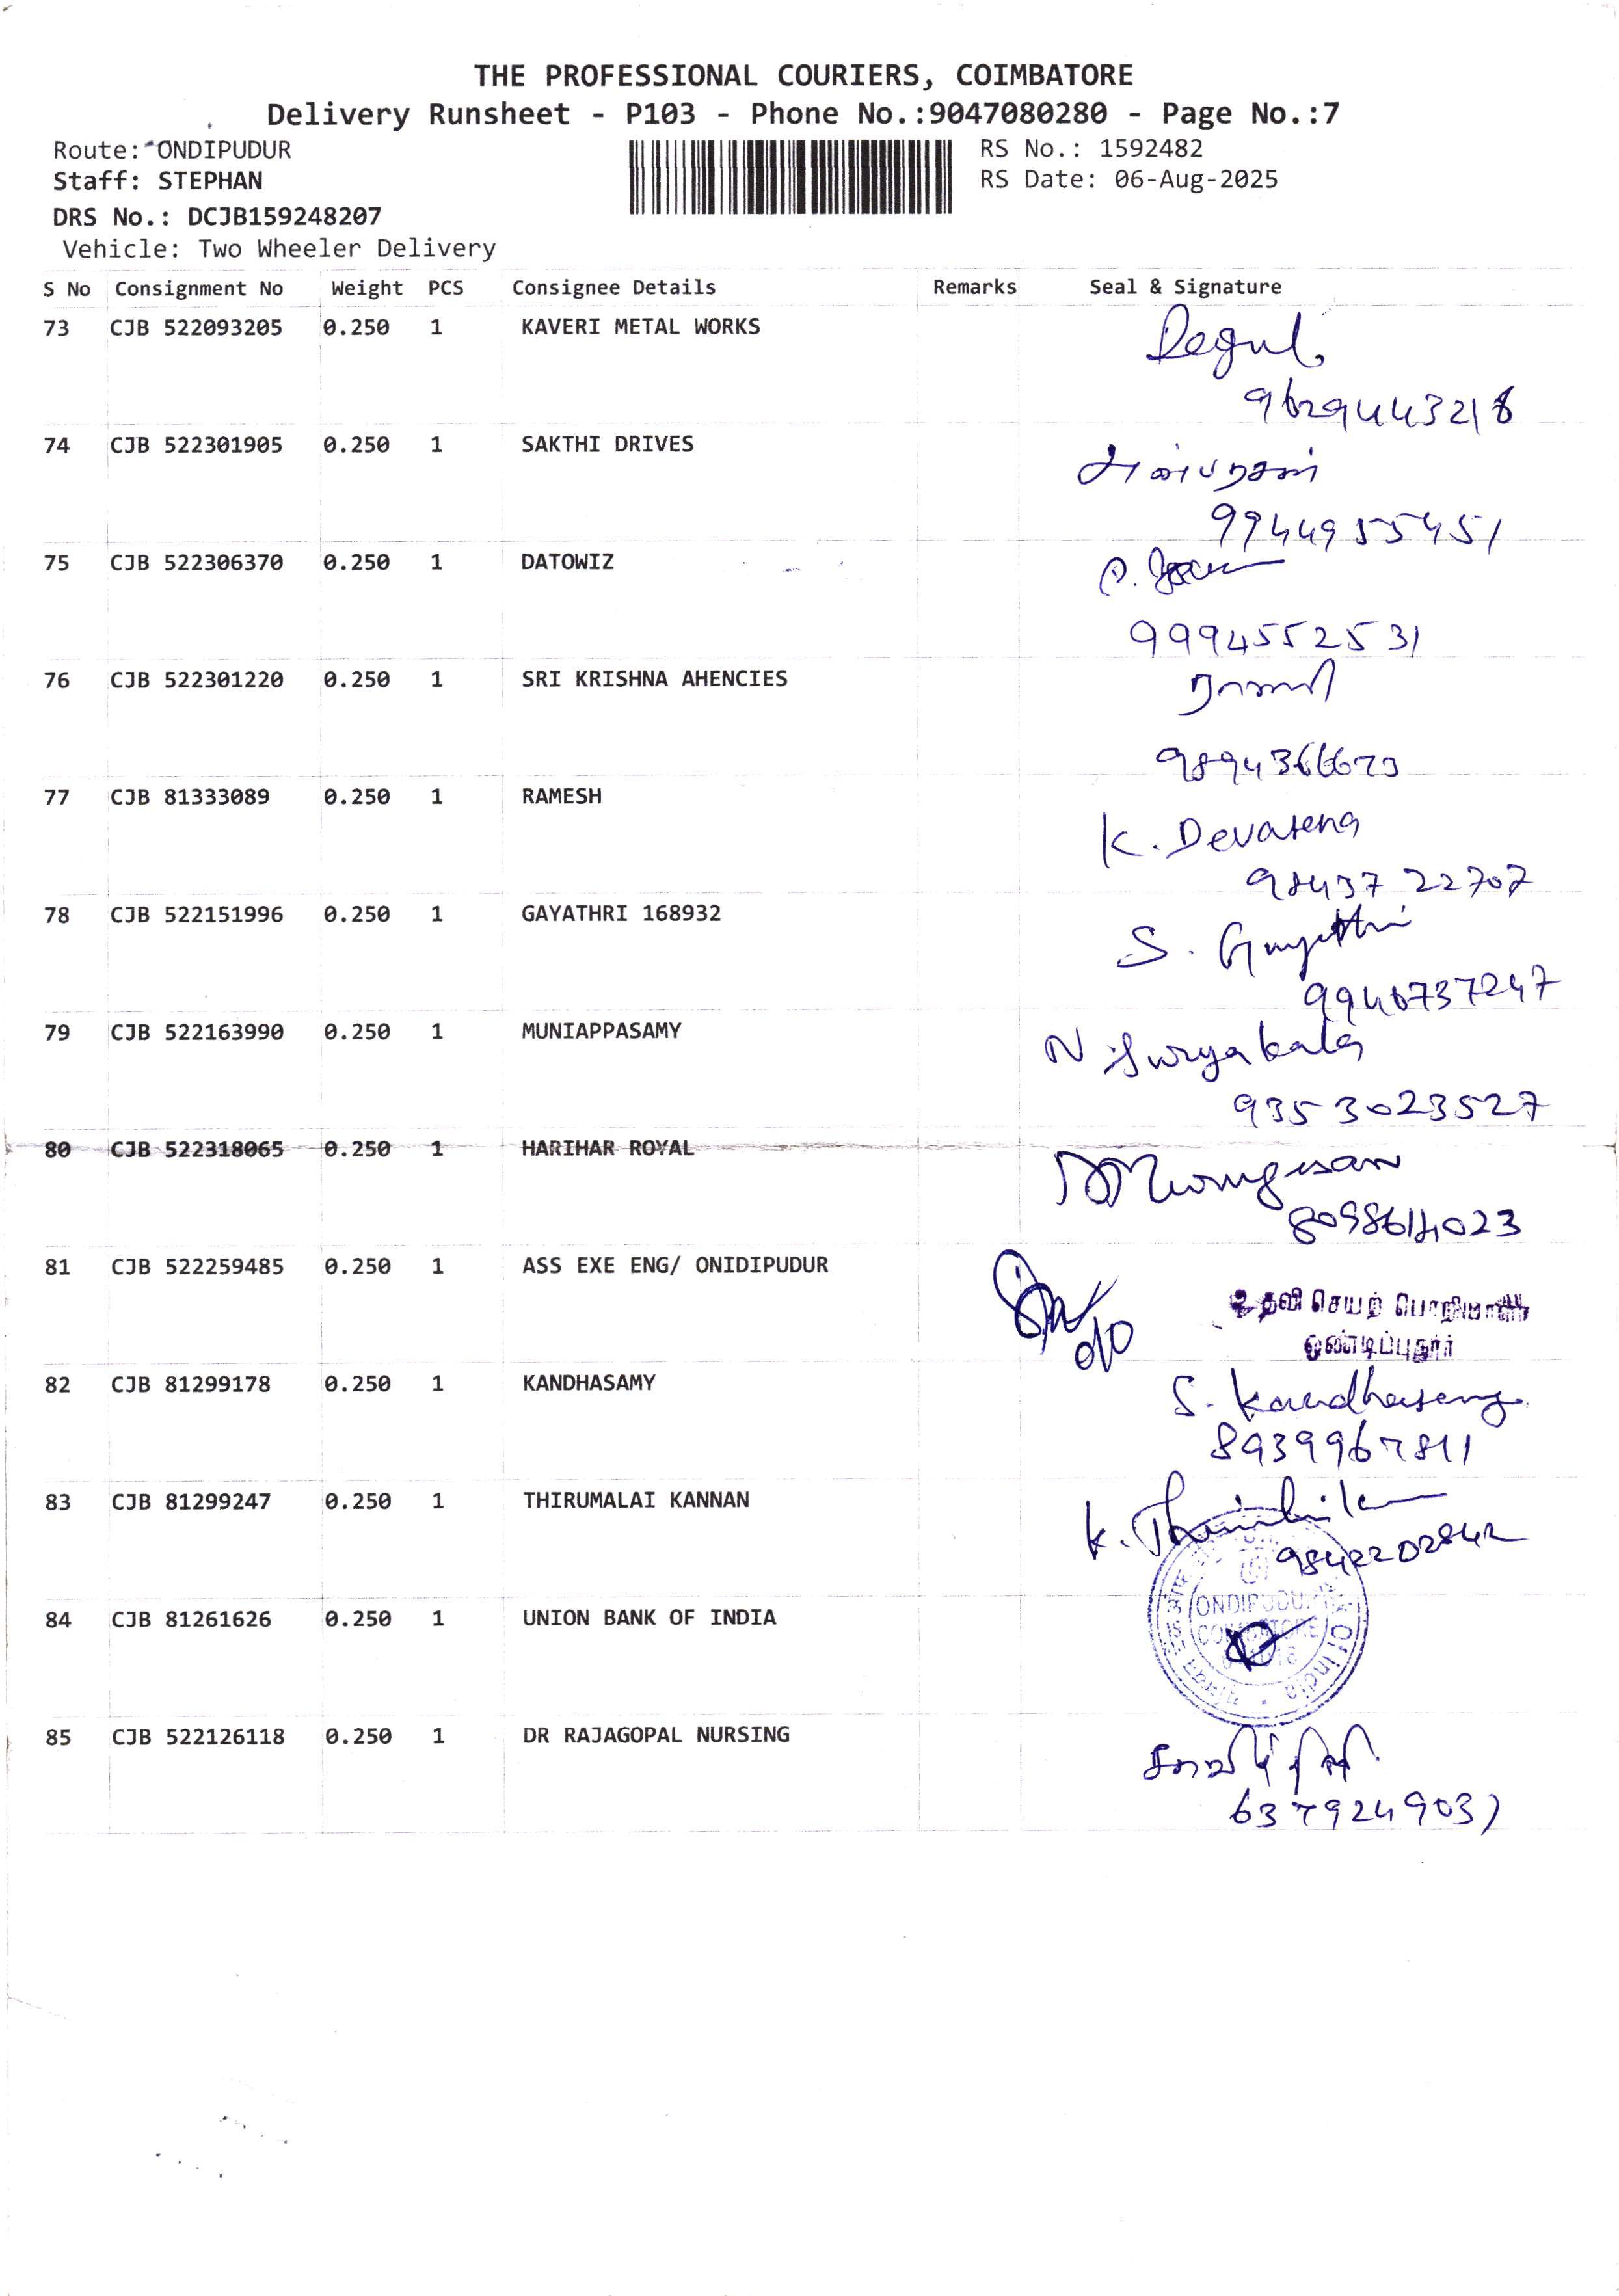 THE PROFESSIONAL COURIERS, COIMBATORE
Delivery Runsheet - P103 - Phone No.:9047080280 - Page No.:7
Route: ONDIPUDUR
Staff: STEPHAN
DRS No.: DCJB159248207
Vehicle: Two Wheeler Delivery
RS No.: 1592482
RS Date: 06-Aug-2025
S No Consignment No Weight PCS Consignee Details Remarks Seal & Signature
73 CJB 522093205 0.250 1 KAVERI METAL WORKS
9629443218
74 CJB 522301905 0.250 1 SAKTHI DRIVES
அன்பரசன்
9944955451
75 CJB 522306370 0.250 1 DATOWIZ
9994552531
76 CJB 522301220 0.250 1 SRI KRISHNA AHENCIES
ராணி
77 CJB 81333089 0.250 1 RAMESH
K. Devasena
98437 22707
78 CJB 522151996 0.250 1 GAYATHRI 168932
S. Gayathri
79 CJB 522163990 0.250 1 MUNIAPPASAMY
N Suryakala
9353023527
80 CJB 522318065 0.250 1 HARIHAR ROYAL
81 CJB 522259485 0.250 1 ASS EXE ENG/ ONIDIPUDUR
உதவி செயற் பொறியாளர்
ஒண்டிப்புதூர்
82 CJB 81299178 0.250 1 KANDHASAMY
S. Kandhasamy
8939967811
83 CJB 81299247 0.250 1 THIRUMALAI KANNAN
9842202842
84 CJB 81261626 0.250 1 UNION BANK OF INDIA
ONDIPUDUR
COIMBATORE
of India
85 CJB 522126118 0.250 1 DR RAJAGOPAL NURSING
சாவித்திரி
6379249037